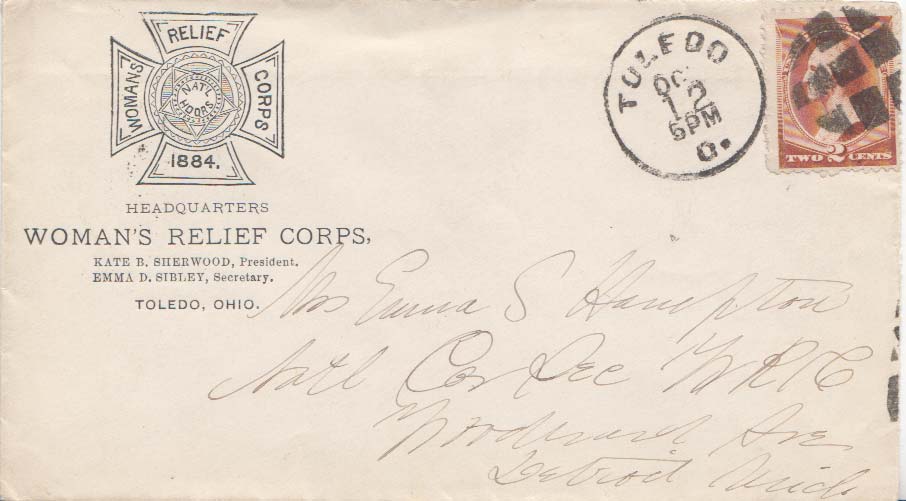 RELIEF
WOMANS
CORPS
NAT'L
HDQRS.
1884.
HEADQUARTERS
WOMAN'S RELIEF CORPS,
KATE B. SHERWOOD, President.
EMMA D. SIBLEY, Secretary.
TOLEDO, OHIO.
TOLEDO
OC
12
6PM
O.
TWO 2 CENTS
Mrs Emma S Hampton
Natl Cor Sec WRC
Woodward Ave
Detroit Mich